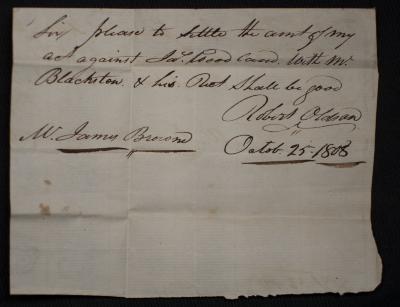 Sir please to Settle the amt of my
act against Jas. Woodland with Mr.
Blackston & his Rect Shall be good
Robert Oldson
Mr. James Browne Octob 25. 1808